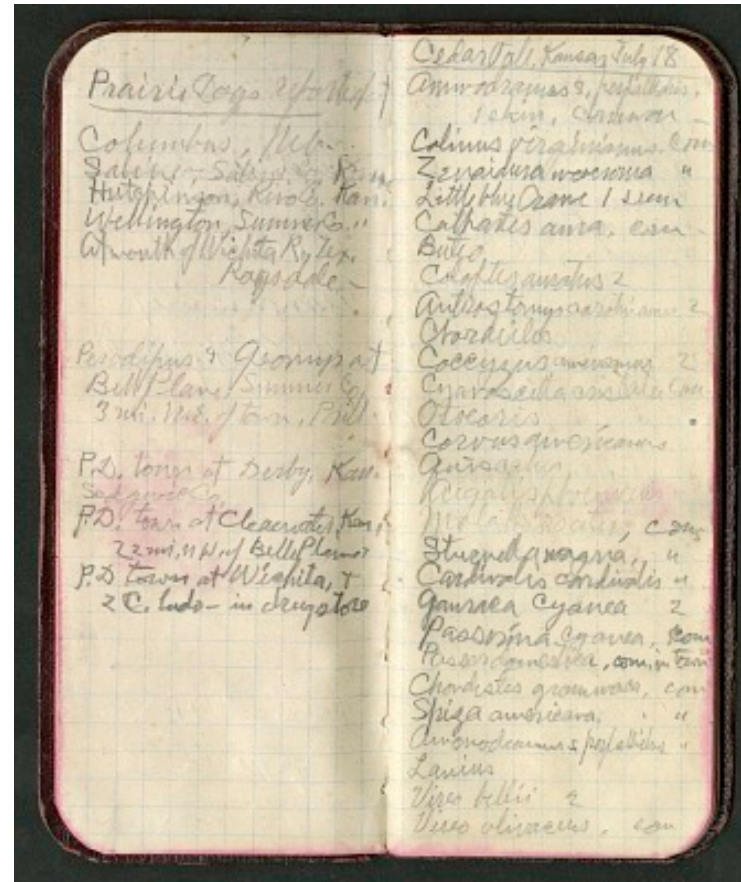 Prairie Dogs reported
Columbus, Neb.
Salina, Saline Co. Kans
Hutchinson, Reno Co. Kan.
Wellington, Sumner Co. "
At mouth of Wichita R, Tex.
Ragsdale -
Perodipus & Geomys at
Belle Plane, Sumner Co
3 mi. N.E. of town,
P.D. town at Derby, Kan.
Sedgwick Co.
P.D. town at Clearwater, Kan,
22 mi, NW of Belle Plane
P.D town at Wichita, &
2 C. ludo - in drugstore
Cedar Vale, Kansas July 18
Ammodramus s. perpallidus,
1 skin, common
Colinus virginianus. com
Zenaidura macroura "
Little blue Crane 1 seen
Cathartes aura, com -
Buteo
Colaptes auratus 2
Antrostomus carolinensis 2
Chordeiles
Coccyzus americanus 2
Cyanocitta cristata com
Otocoris
Corvus americanus
Quiscalus
Agelaius phoeniceus
Molothrus ater, com
Sturnella magna, "
Cardinalis cardinalis "
Guiraca Cyanea 2
Passerina cyanea, com
Passer domestica, com, in town
Chondestes grammaca, com
Spiza americana, "
Ammodramus s perpallidus "
Lanius
Vireo bellii 2
Vireo olivaceus, com